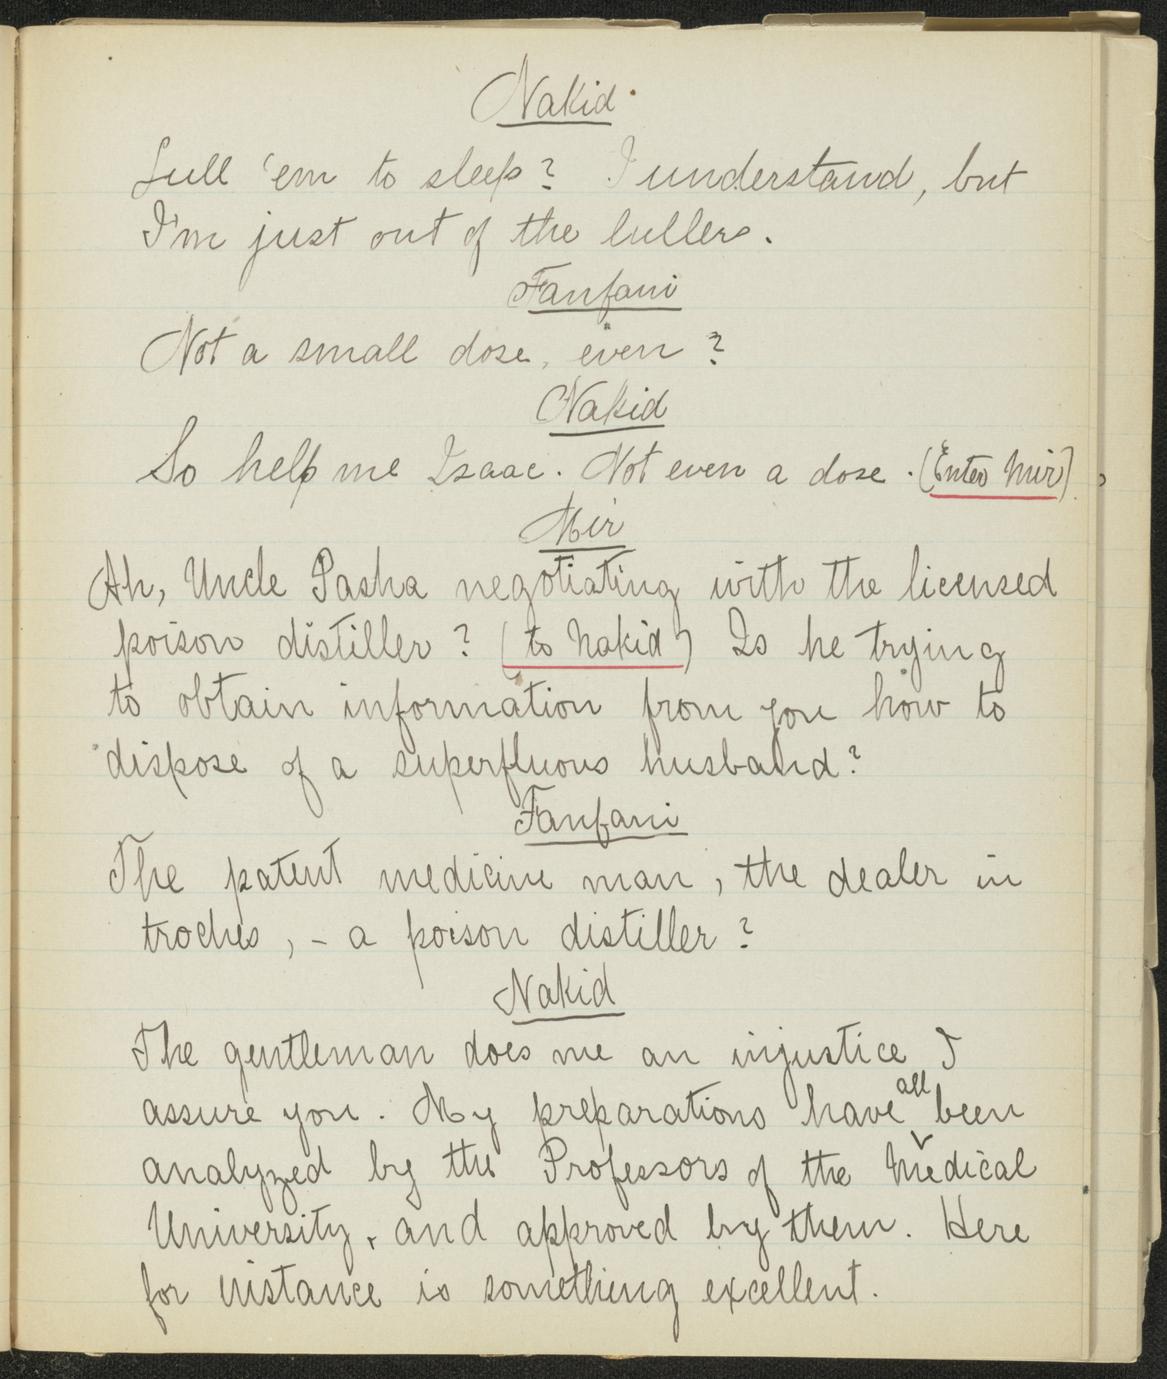 Nakid
Lull 'em to sleep? I understand, but
I'm just out of the lullers.
Fanfani
Not a small dose, even?
Nakid
So help me Isaac. Not even a dose. (Enter Mir)
Mir
Ah, Uncle Pasha negotiating with the licensed
poison distiller? (to Nakid) Is he trying
to obtain information from you how to
dispose of a superfluous husband?
Fanfani
The patent medicine man, the dealer in
troches, - a poison distiller?
Nakid
The gentleman does me an injustice I
assure you. My preparations have all been
analyzed by the Professors of the Medical
University, and approved by them. Here
for instance is something excellent.